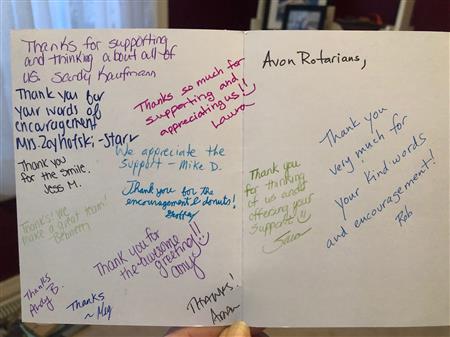 Thanks for supporting
and thinking about all of
us. Sandy Kaufmann
Thank you for
your words of
encouragement
Mrs. Zoykotski-Starr
Thank you
for the smile.
Jess M.
Thanks so much for
supporting and
appreciating us!!
Laura
We appreciate the
support - Mike D.
Thank you for the
encouragement & donuts!
Thanks! We
make a great team!
Thank you for
the awesome
greeting!!
Amy
Thanks
Andy B.
Thanks
~ Meg
THANKS!
Avon Rotarians,
Thank you
for thinking
of us and
offering your
support!!
Sara
Thank you
very much for
your kind words
and encouragement!
Rob